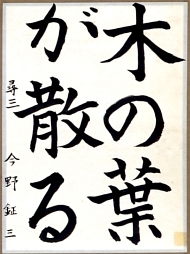 木の葉
が散る
尋三 今野鉦三